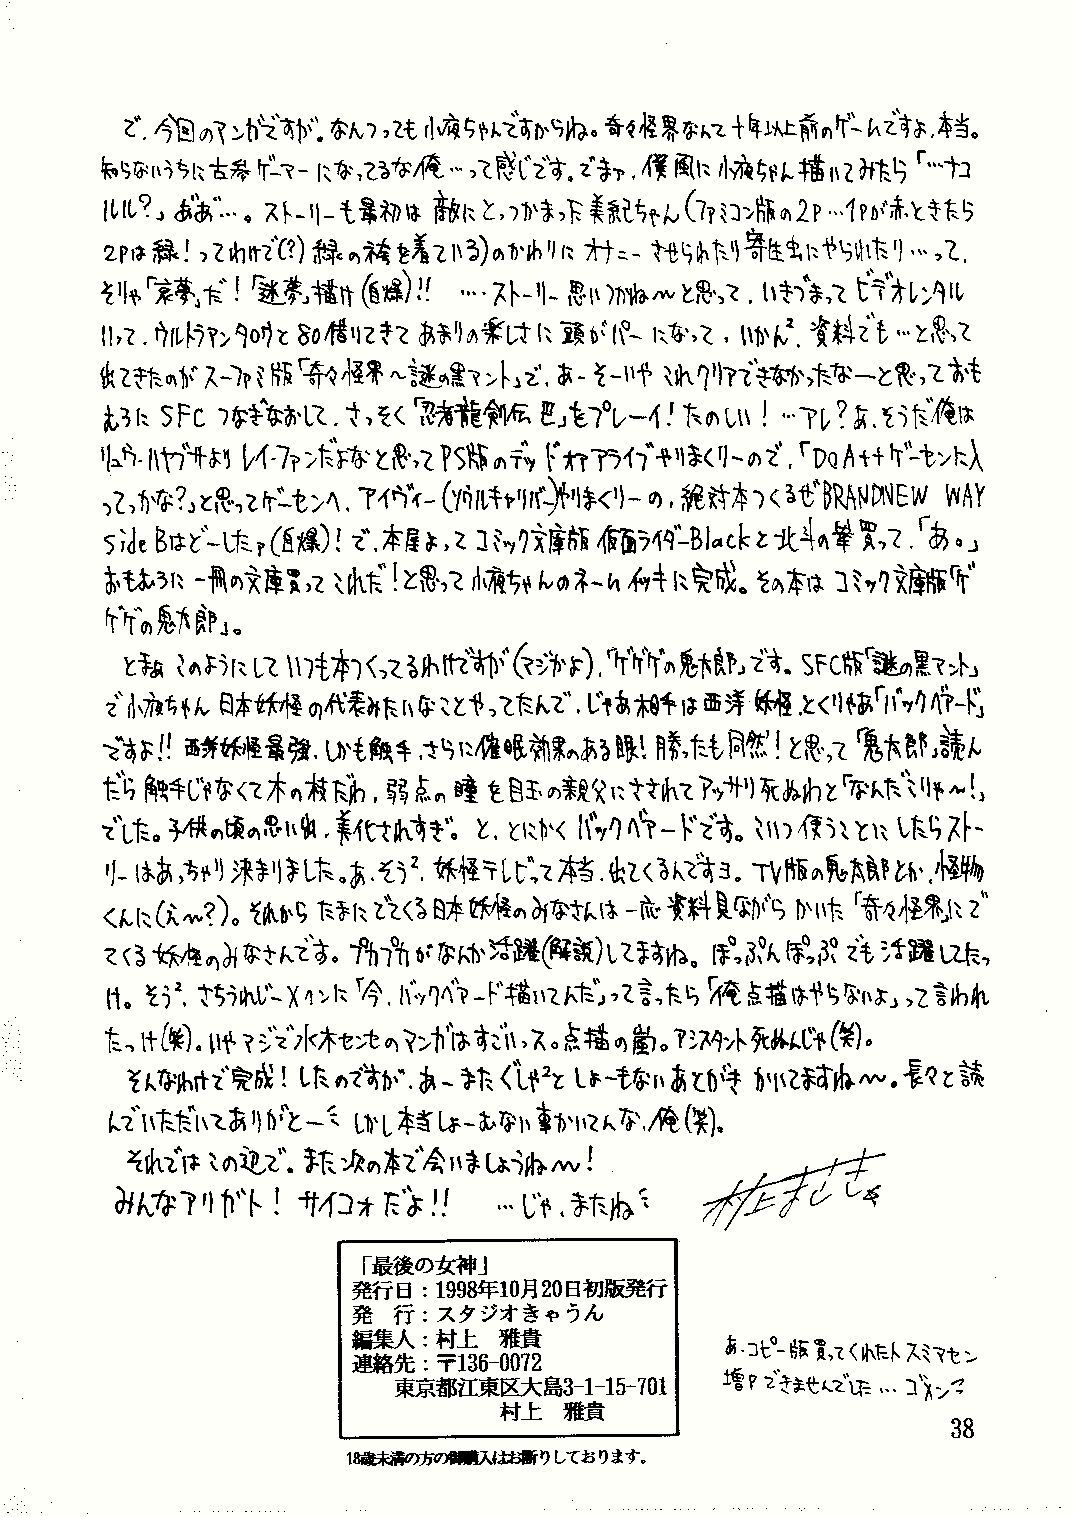 で、今回のマンガですが。なんつっても小夜ちゃんですからね。奇々怪界なんて十年以上前のゲームですよ、本当。
知らないうちに古参ゲーマーになってるな俺…って感じです。でまァ、僕風に小夜ちゃん描いてみたら「…ナコ
ルル?」ああ゛…。ストーリーも最初は敵にとっつかまった美紀ちゃん(ファミコン版の2P…1Pが赤ときたら
2Pは緑!ってわけで(?)緑の袴を着ている)のかわりにオナニーさせられたり寄生虫にやられたり…って、
そりゃ「哀夢」だ!「迷夢」描け(自爆)!! …ストーリー思いつかね〜と思って、いきづまってビデオレンタル
いって、ウルトラマンタロウと80借りてきてあまりの楽しさに頭がパーになって、いかん²、資料でも…と思って
出てきたのがスーファミ版「奇々怪界〜謎の黒マント」で、あーそーいやこれクリアできなかったなーと思っておも
むろにSFCつなぎなおして、さっそく「忍者龍剣伝巴」をプレーイ!たのしい!…アレ?あ、そうだ俺は
リュウ・ハヤブサよりレイ・ファンだよなと思ってPS版のデッドオアアライブやりまくりーので、「DOA++ゲーセンに入
ってっかな?」と思ってゲーセンへ、アイヴィー(ソウルキャリバー)やりまくりーの、絶対本つくるぜBRANDNEW WAY
sideBはどーしたァ(自爆)!で、本屋よってコミック文庫版仮面ライダーBlackと北斗の拳買って、「あ。」
おもむろに一冊の文庫買ってこれだ!と思って小夜ちゃんのネームイッキに完成。その本はコミック文庫版「ゲ
ゲゲの鬼太郎」。
とまぁこのようにしていつも本つくってるわけですが(マジかよ)、「ゲゲゲの鬼太郎」です。SFC版「謎の黒マント」
で小夜ちゃん日本妖怪の代表みたいなことやってたんで、じゃあ相手は西洋妖怪、とくりゃあ「バックベアード」
ですよ!!西洋妖怪最強、しかも触手、さらに催眠効果のある眼!勝ったも同然!と思って「鬼太郎」読ん
だら触手じゃなくて木の枝だわ、弱点の瞳を目玉の親父にさされてアッサリ死ぬわと「なんだこりゃ〜!」
でした。子供の頃の思い出、美化されすぎ。と、とにかくバックベアードです。こいつ使うことにしたらストー
リーはあっちゃり決まりました。あ、そう²、妖怪テレビって本当、出てくるんですヨ。TV版の鬼太郎とか、怪物
くんに(え〜?)。それからたまにでてくる日本妖怪のみなさんは一応資料見ながらかいた「奇々怪界」にで
てくる妖怪のみなさんです。プカプカがなんか活躍(解説)してますね。ぽっぷんぽっぷでも活躍してたっ
け。そう²、さちうれじーXクンに「今、バックベアード描いてんだ」って言ったら「俺点描はやらないよ」って言われ
たっけ(笑)。いやマジで水木センセのマンガはすごいっス。点描の嵐。アシスタント死ぬんじゃ(笑)。
そんなわけで完成!したのですが、あーまたぐしゃ²としょーもないあとがきかいてますね〜。長々と読
んでいただいてありがとー ミ しかし本当しょーむない事かいてんな、俺(笑)。
それではこの辺で。また次の本で会いましょうね〜!
みんなアリガト! サイコォだよ!! …じゃ、またねミ
村上まさき
「最後の女神」
発行日：1998年10月20日初版発行
発　行：スタジオきゃうん
編集人：村上　雅貴
連絡先：〒136-0072
東京都江東区大島3-1-15-701
村上　雅貴
あ、コピー版買ってくれた人スミマセン
増Pできませんでした…ゴメンネ
38
18歳未満の方の御購入はお断りしております。